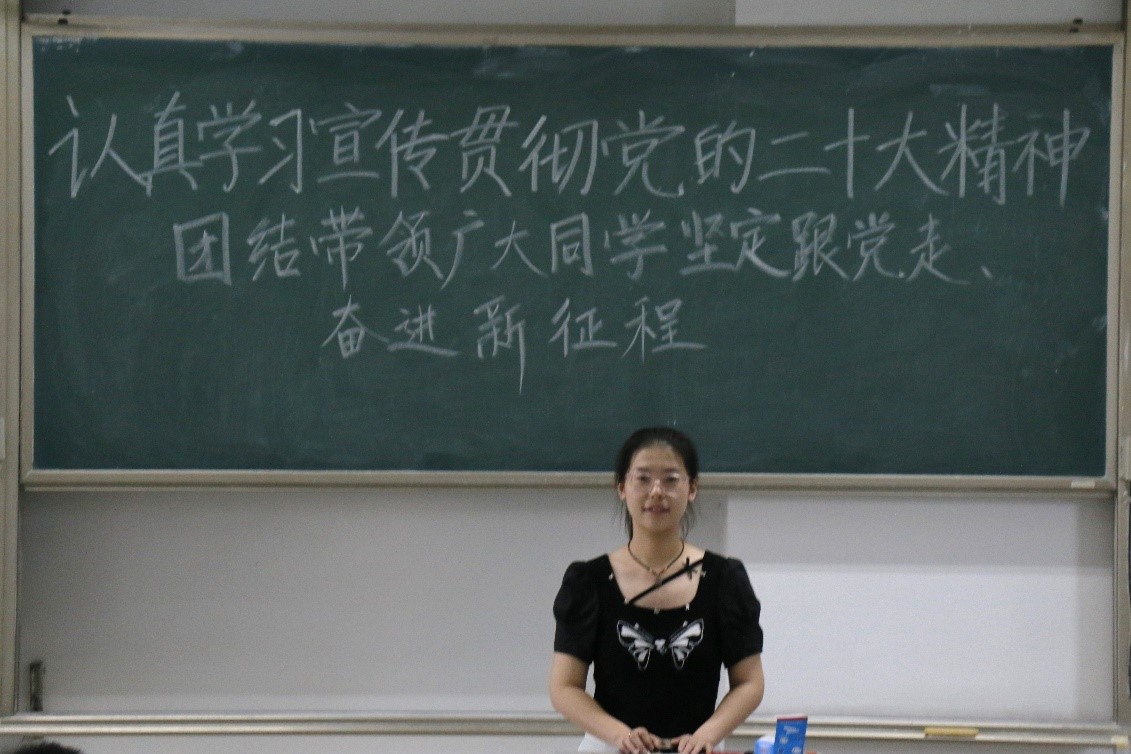 认真学习宣传贯彻党的二十大精神
团结带领广大同学坚定跟党走、
奋进新征程